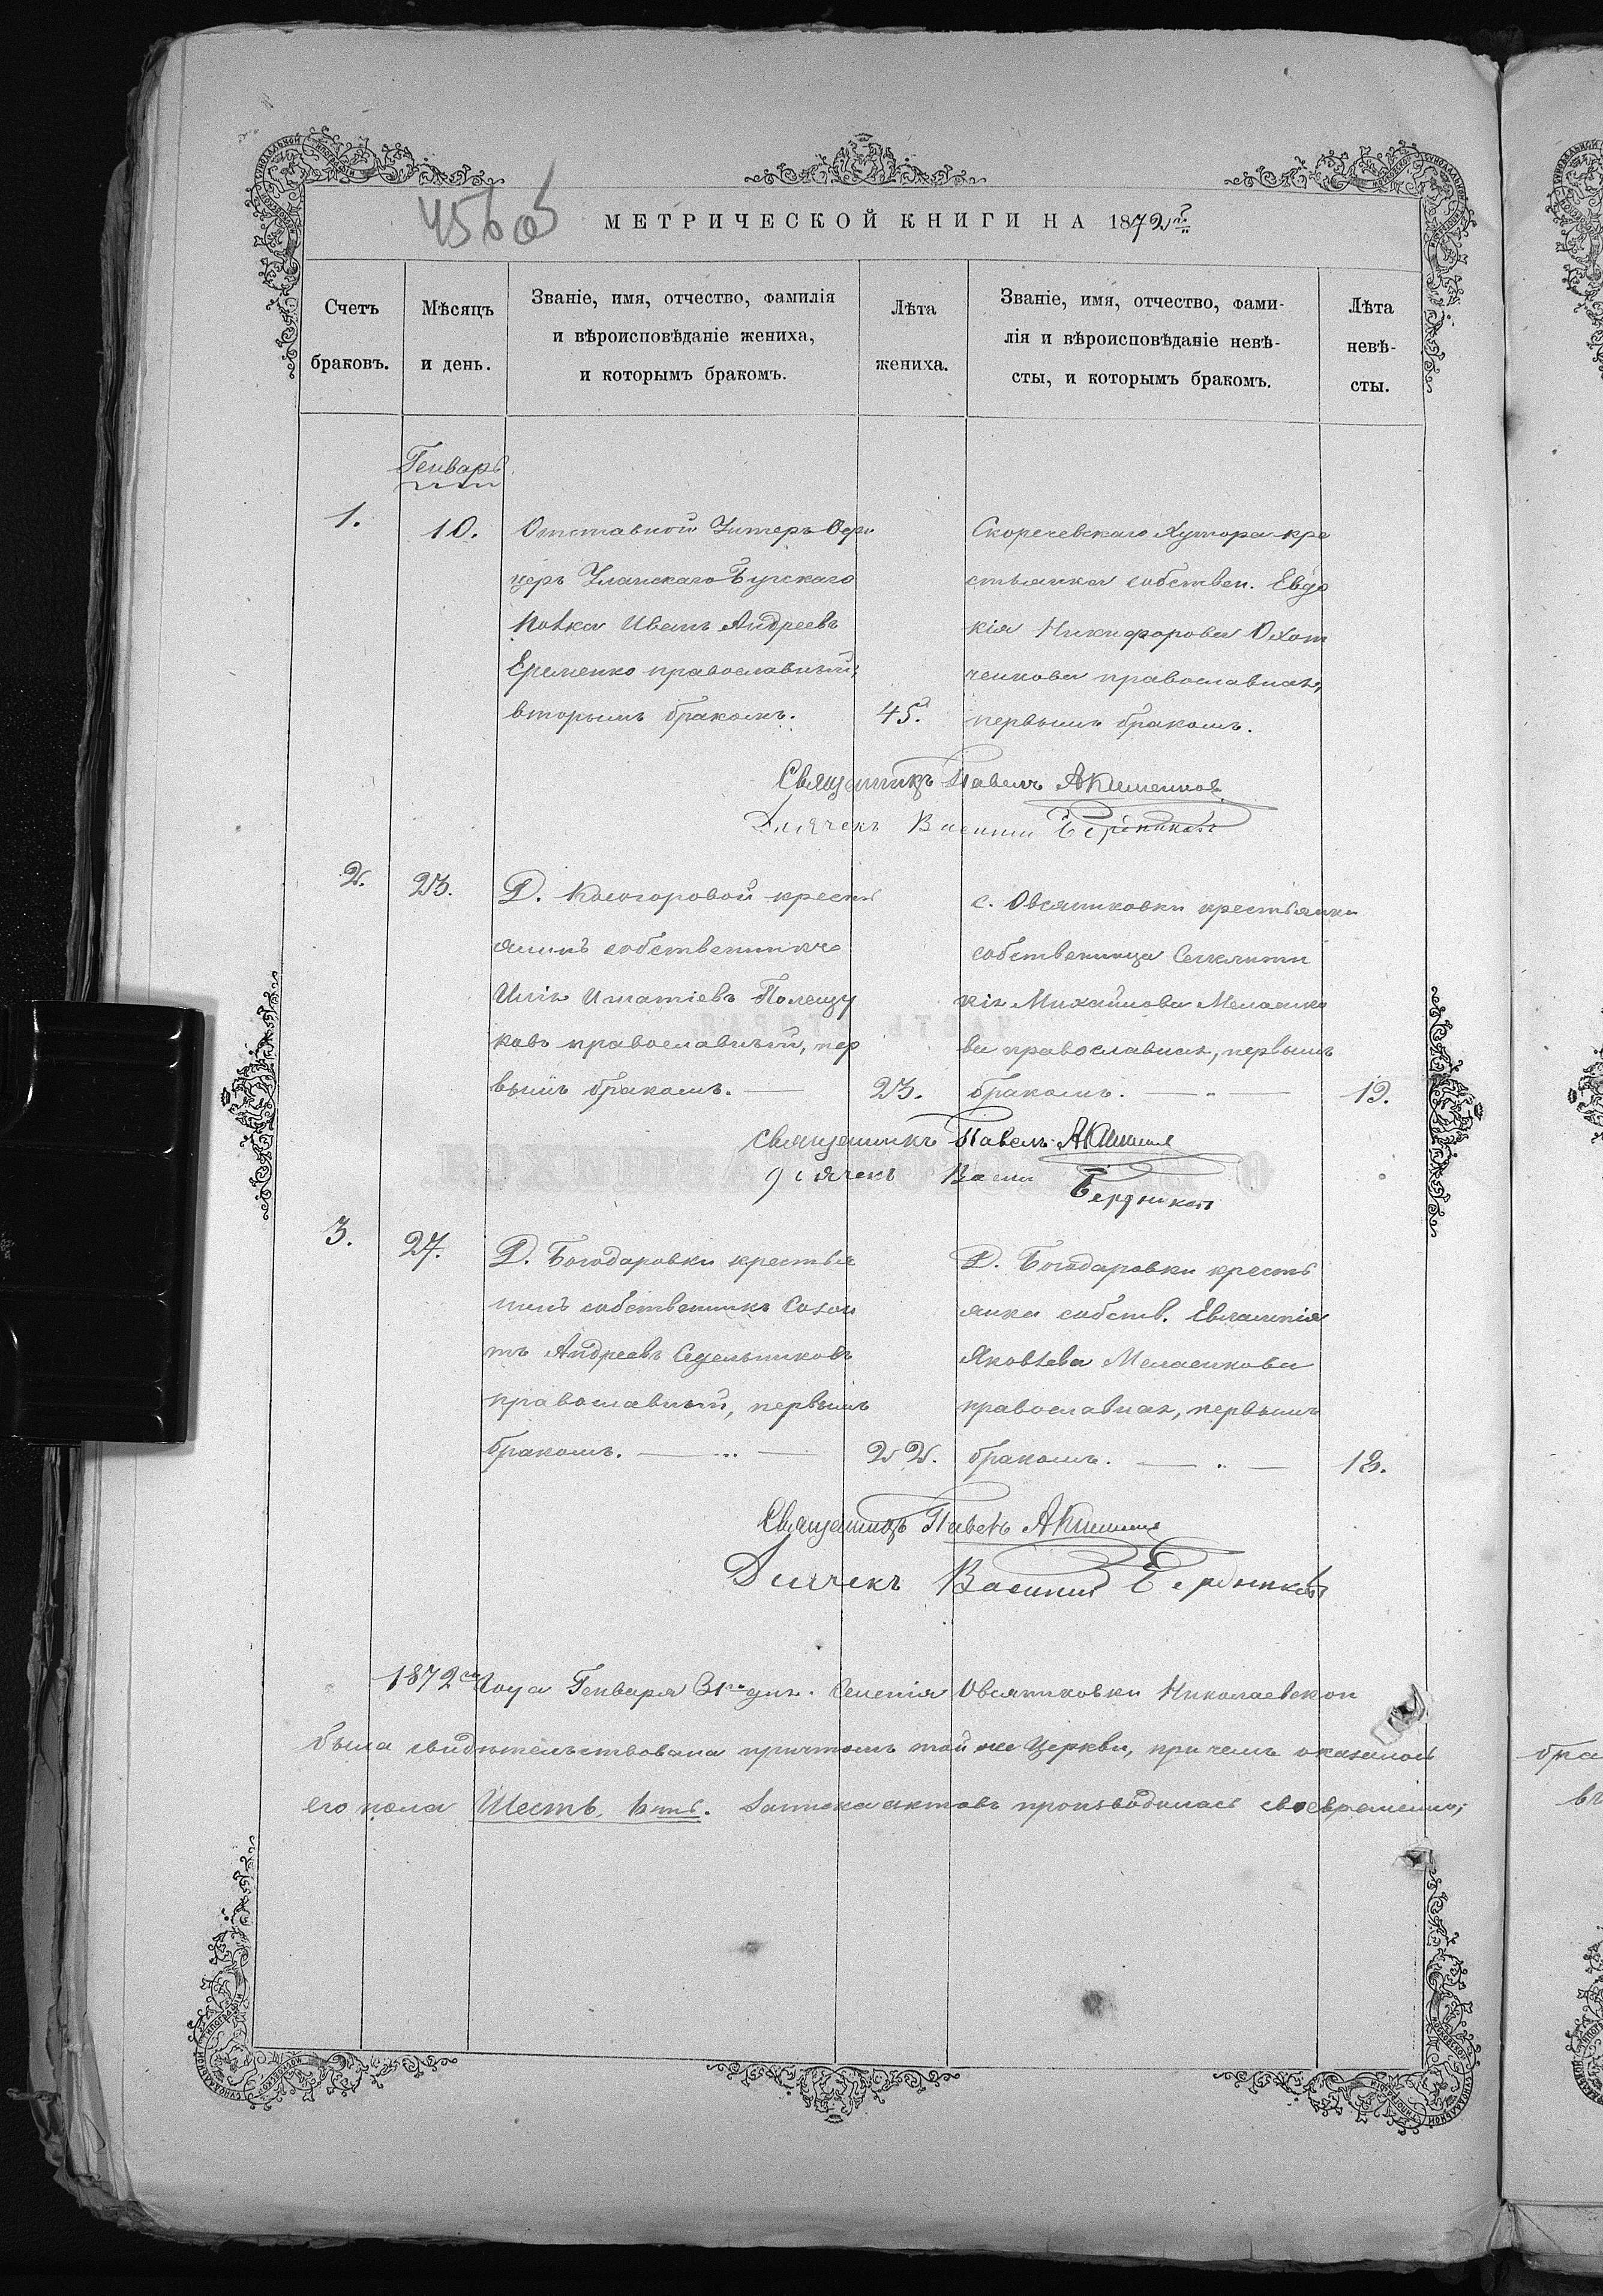 456об
МЕТРИЧЕСКОЙ КНИГИ НА 1872й
Счетъ браковъ.
Мѣсяцъ и день.
Званіе, имя, отчество, фамилія
и вѣроисповѣданіе жениха,
и которымъ бракомъ.
Лѣта жениха.
Званіе, имя, отчество, фами-
лія и вѣроисповѣданіе невѣ-
сты, и которымъ бракомъ.
Лѣта невѣ-
сты.
Генварь
1.
10.
Отставной Унтеръ Офи
церъ Уланскаго Бугскаго
Полка Иванъ Андреевъ
Еременко православный,
вторымъ бракомъ.
45.
Скоречевскаго Хутора кре
стьянка собствен. Евдо
кія Никифорова Охот
ченкова православная,
первымъ бракомъ.
Священникъ Павелъ
Дьячекъ Василий Бердников
2.
23.
Д. Косогоровой кресть
янинъ собственникъ
Илія Игнатіевъ Полещу
ковъ православный, пер
вымъ бракомъ. —
23.
с. Овсяниковки крестьянка
собственница Секлити
кія Михайлова Мелаенко
ва православная, первымъ
бракомъ. — „ —
19.
Священникъ Павелъ
Дьячекъ Васили Бердников
3.
27.
Д. Богодаровки крестья
нинъ собственникъ Созон
тъ Андреевъ Седельниковъ
православный, первымъ
бракомъ. — „ —
22.
Д. Богодаровки кресть
янка собств. Евлампія
Яковлева Мелаенкова
православная, первымъ
бракомъ. — „ —
18.
Священникъ Павелъ
Дьячекъ Василий Бердников
1872го Года Генваря 31го дня. Селенія Овсяниковки Николаевской
была свидѣтельствована причтомъ той же Церкви, при чемъ оказалось
его пола Шесть. Записка актовъ производилась своевременно;